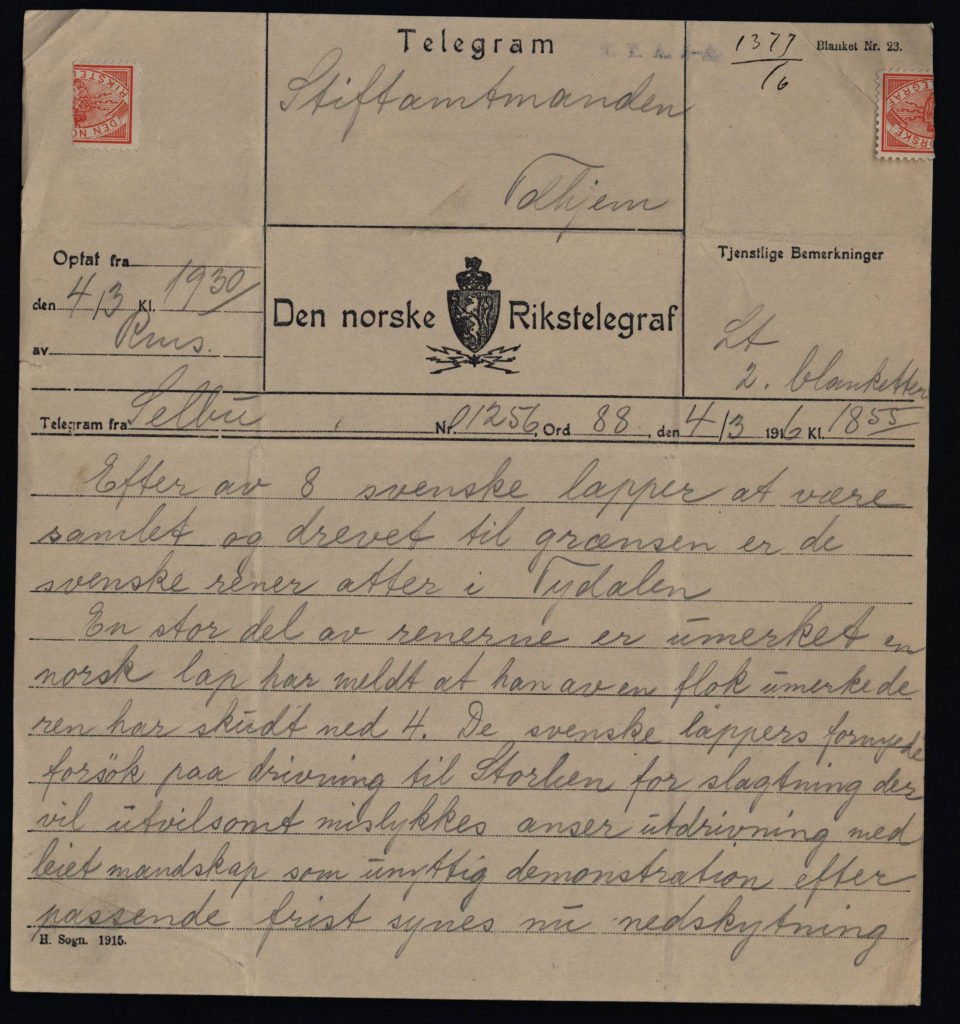 Telegram
1377/16
Blanket Nr. 23.
Stiftamtmanden
Tdhjem
Optat fra
den 4/3 Kl. 1930
av Rms.
Den norske Rikstelegraf
Tjenstlige Bemerkninger
Lt
2. blanketter
Telegram fra Selbu Nr. 01256, Ord 88, den 4/3 1916 Kl. 1855
Efter av 8 svenske lapper at være
samlet og drevet til grænsen er de
svenske rener atter i Tydalen
En stor del av renerne er umerket en
norsk lap har meldt at han av en flok umerkede
ren har skudt ned 4. De svenske lappers fornyede
forsök paa drivning til Storlien for slagtning der
vil utvilsomt mislykkes anser utdrivning med
leiet mandskap som unyttig demonstration efter
passende frist synes nu nedskytning
H. Sogn. 1915.